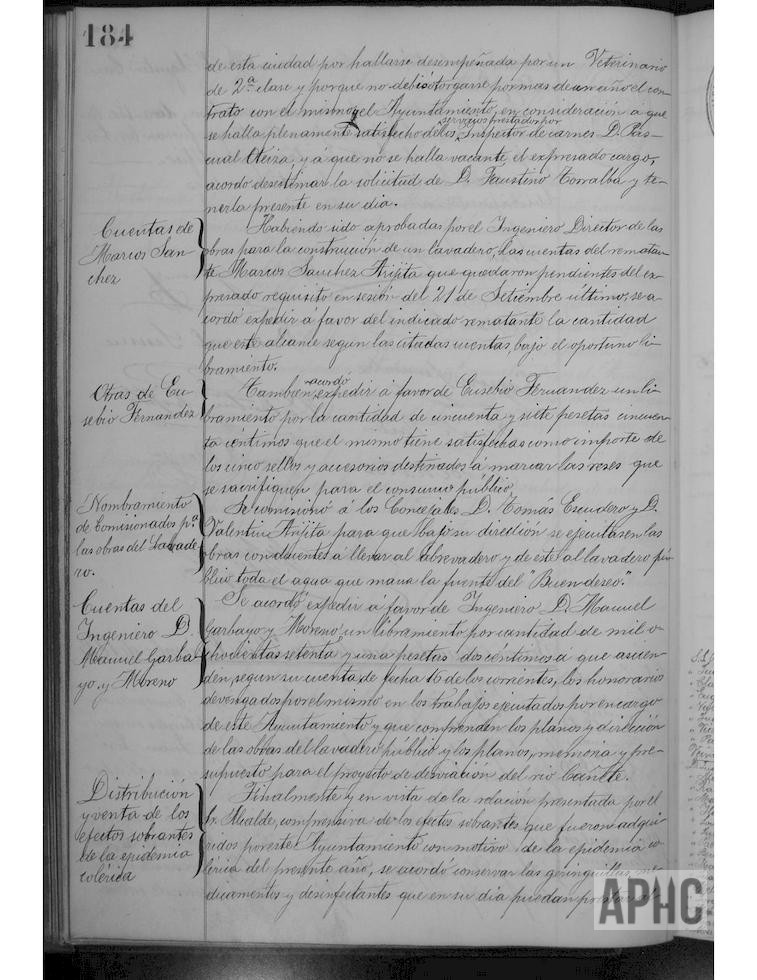 184
de esta ciudad por hallarse desempeñada por un Veterinario
de 2ª clase y porque no debió otorgarse por mas de un año el con-
trato con el mismo y el Ayuntamiento, en consideración a que
se halla plenamente satisfecho de los servicios prestados por Inspector de carnes D. Pas-
cual Oteiza, y á que no se halla vacante, el expresado cargo,
acordó desestimar la solicitud de D. Faustino Torralba y te-
nerla presente en su dia.
Cuentas de
Marcos San-
chez
Habiendo sido aprobadas por el Ingeniero Director de las
obras para la construcción de un lavadero, las cuentas del rematan-
te Marcos Sanchez Arijita que quedaron pendientes del ex-
presado requisito en sesión del 21 de Setiembre último, se a-
cordó expedir á favor del indicado rematante la cantidad
que este alcance segun las citadas cuentas, bajo el oportuno li-
bramiento.
Otras de Eu-
sebio Fernandez
Tambien acordó expedir á favor de Eusebio Fernandez un li-
bramiento por la cantidad de cincuenta y siete pesetas cincuen-
ta centimos que el mismo tiene satisfechas como importe de
los cinco sellos y accesorios destinados á marcar las reses que
se sacrifiquen para el consumo público.
Nombramiento
de Comisionados pª
las obras del Lavade-
ro.
Se comisionó a los Concejales D. Tomás Escudero y D.
Valentin Arijita para que bajo su dirección se ejecutasen las
obras conducentes á llevar al abrevadero y de este al lavadero pú-
blico toda el agua que mana la fuente del "Buen deseo".
Cuentas del
Ingeniero D.
Manuel Garba-
yo y Moreno
Se acordó expedir á favor de Ingeniero D. Manuel
Garbayo y Moreno, un libramiento por cantidad de mil o-
chocientas setenta y una pesetas dos céntimos á que ascien-
den, segun su cuenta de fecha 16 de los corrientes, los honorarios
devengados por el mismo en los trabajos ejecutados por encargo
de este Ayuntamiento y que comprenden los planos y dirección
de las obras del lavadero público y los planos, memoria y pre-
supuesto para el proyecto de desviación del rio Cañete.
Distribución
y venta de los
efectos sobrantes
de la epidemia
colérica
Finalmente y en vista de la relación presentada por el
Sr. Alcalde, comprensiva de los efectos sobrantes que fueron adqui-
ridos por este Ayuntamiento con motivo de la epidemia co-
lérica del presente año, se acordó conservar las geringuillas, me-
dicamentos y desinfectantes que en su dia puedan
APHC